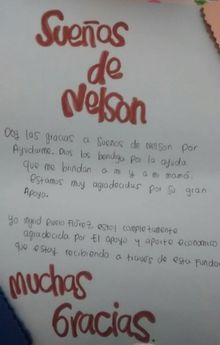 Sueños
de
Nelson
Doy las gracias a Sueños de Nelson por
Ayudarme. Dios los bendiga por la ayuda
que me brindan a mi y a mi mamá.
Estamos muy agradecidas por su gran
Apoyo.
Yo Ingrid Flórez estoy completamente
agradecida por El apoyo y aporte economico
que estoy recibiendo a traves de esta Fundac
Muchas
Gracias.